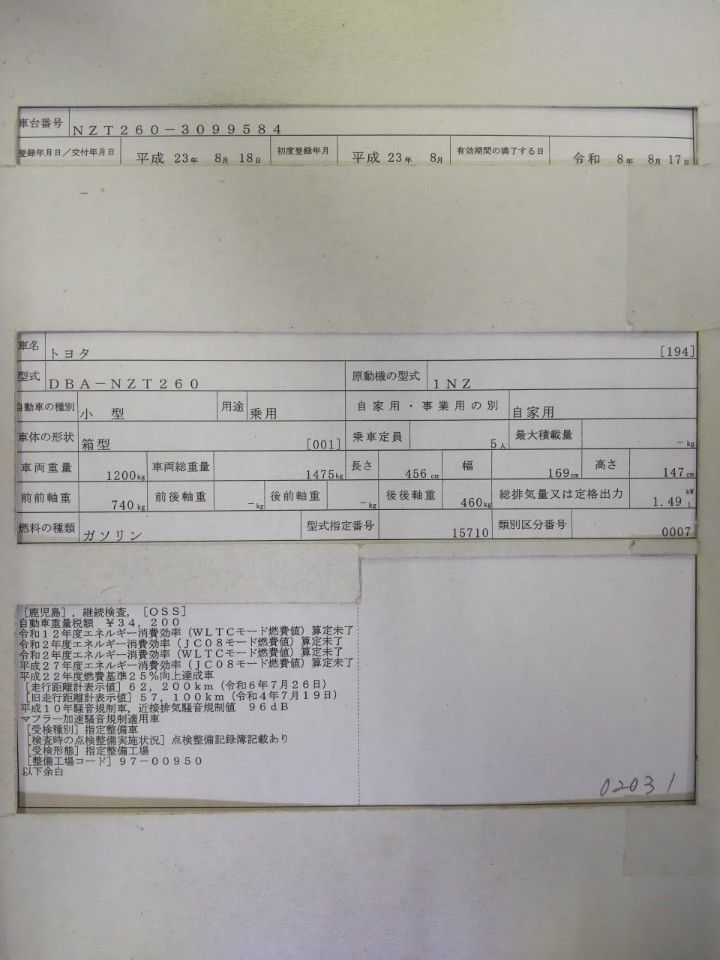 車台番号 NZT260-3099584
登録年月日/交付年月日 平成 23年 8月 18日 初度登録年月 平成 23年 8月 有効期間の満了する日 令和 8年 8月 17日
車名 トヨタ [194]
型式 DBA-NZT260 原動機の型式 1NZ
自動車の種別 小型 用途 乗用 自家用・事業用の別 自家用
車体の形状 箱型 [001] 乗車定員 5人 最大積載量 -kg
車両重量 1200kg 車両総重量 1475kg 長さ 456cm 幅 169cm 高さ 147cm
前前軸重 740kg 前後軸重 -kg 後前軸重 -kg 後後軸重 460kg 総排気量又は定格出力 1.49 kW L
燃料の種類 ガソリン 型式指定番号 15710 類別区分番号 0007
[鹿児島],継続検査,[OSS]
自動車重量税額 ¥34,200
令和12年度エネルギー消費効率(WLTCモード燃費値)算定未了
令和2年度エネルギー消費効率(JC08モード燃費値)算定未了
令和2年度エネルギー消費効率(WLTCモード燃費値)算定未了
平成27年度エネルギー消費効率(JC08モード燃費値)算定未了
平成22年度燃費基準25%向上達成車
[走行距離計表示値]62,200km(令和6年7月26日)
[旧走行距離計表示値]57,100km(令和4年7月19日)
平成10年騒音規制車,近接排気騒音規制値 96dB
マフラー加速騒音規制適用車
[受検種別]指定整備車
[検査時の点検整備実施状況]点検整備記録簿記載あり
[受検形態]指定整備工場
[整備工場コード]97-00950
以下余白
02031